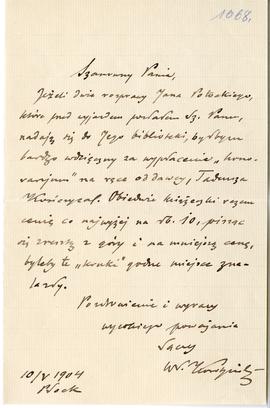 1068.
Szanowny Panie,
Jeżeli dwie rozprawy Jana Potockiego,
które przed wyjazdem posłałem Sz. Panu,
nadają się do Jego biblioteki, byłbym
bardzo wdzięczny za wypłacenie „hono-
rarjum" na ręce oddawcy, Tadeusza
Obiedwie książeczki razem
cenię co najwyżej na rb. 10, pisząc
się zresztą z góry i na mniejszą cenę,
byleby te „kruki" godne miejsce zna-
lazły.
Pozdrowienie i wyrazy
wysokiego poważania
łączę
10/V 1904
Płock